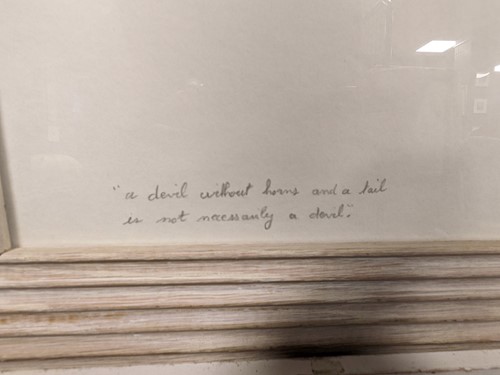 "a devil without horns and a tail
is not necessarily a devil".